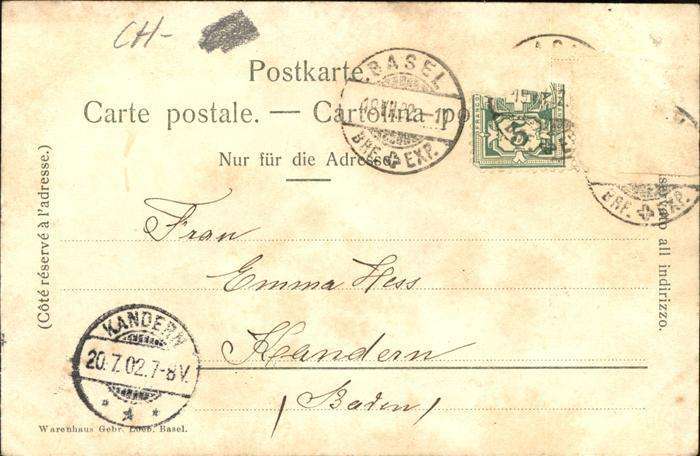 CH-
Postkarte.
Carte postale. — Cartolina po
Nur für die Adresse.
(Côté réservé à l'adresse.)
servato all indirizzo.
BASEL
BRF. EXP.
5
BRF. EXP.
Frau
Emma Hess
Kandern
(Baden)
KANDERN
20.7.02.7-8V.
Warenhaus Gebr. Loeb. Basel.